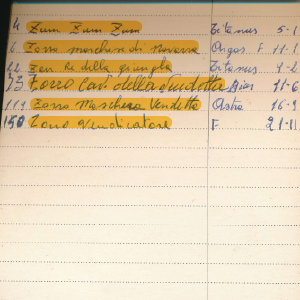 4 Zum Zum Zum Titanus 5-1
6 Zorro maschera di Navarra Orgas F 11-1
12 Zan Re della giungla Titanus 1-2
73 Zorro Cav. della Vendetta Dias 11-6
119 Zorro Maschera Vendetta Astra 16-9
150 Zorro Vendicatore F 21-11